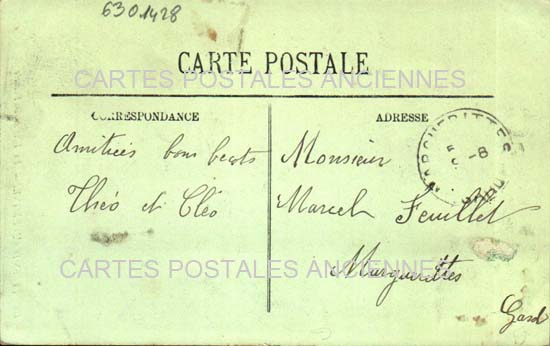 6301428
CARTE POSTALE
CARTES POSTALES ANCIENNES
CORRESPONDANCE
ADRESSE
Amitiés bons
Théo et Cléo
Monsieur
Marcel Feuillet
Marguerittes
Gard
MARGUERITTES
8
GARD
CARTES POSTALES ANCIENNES